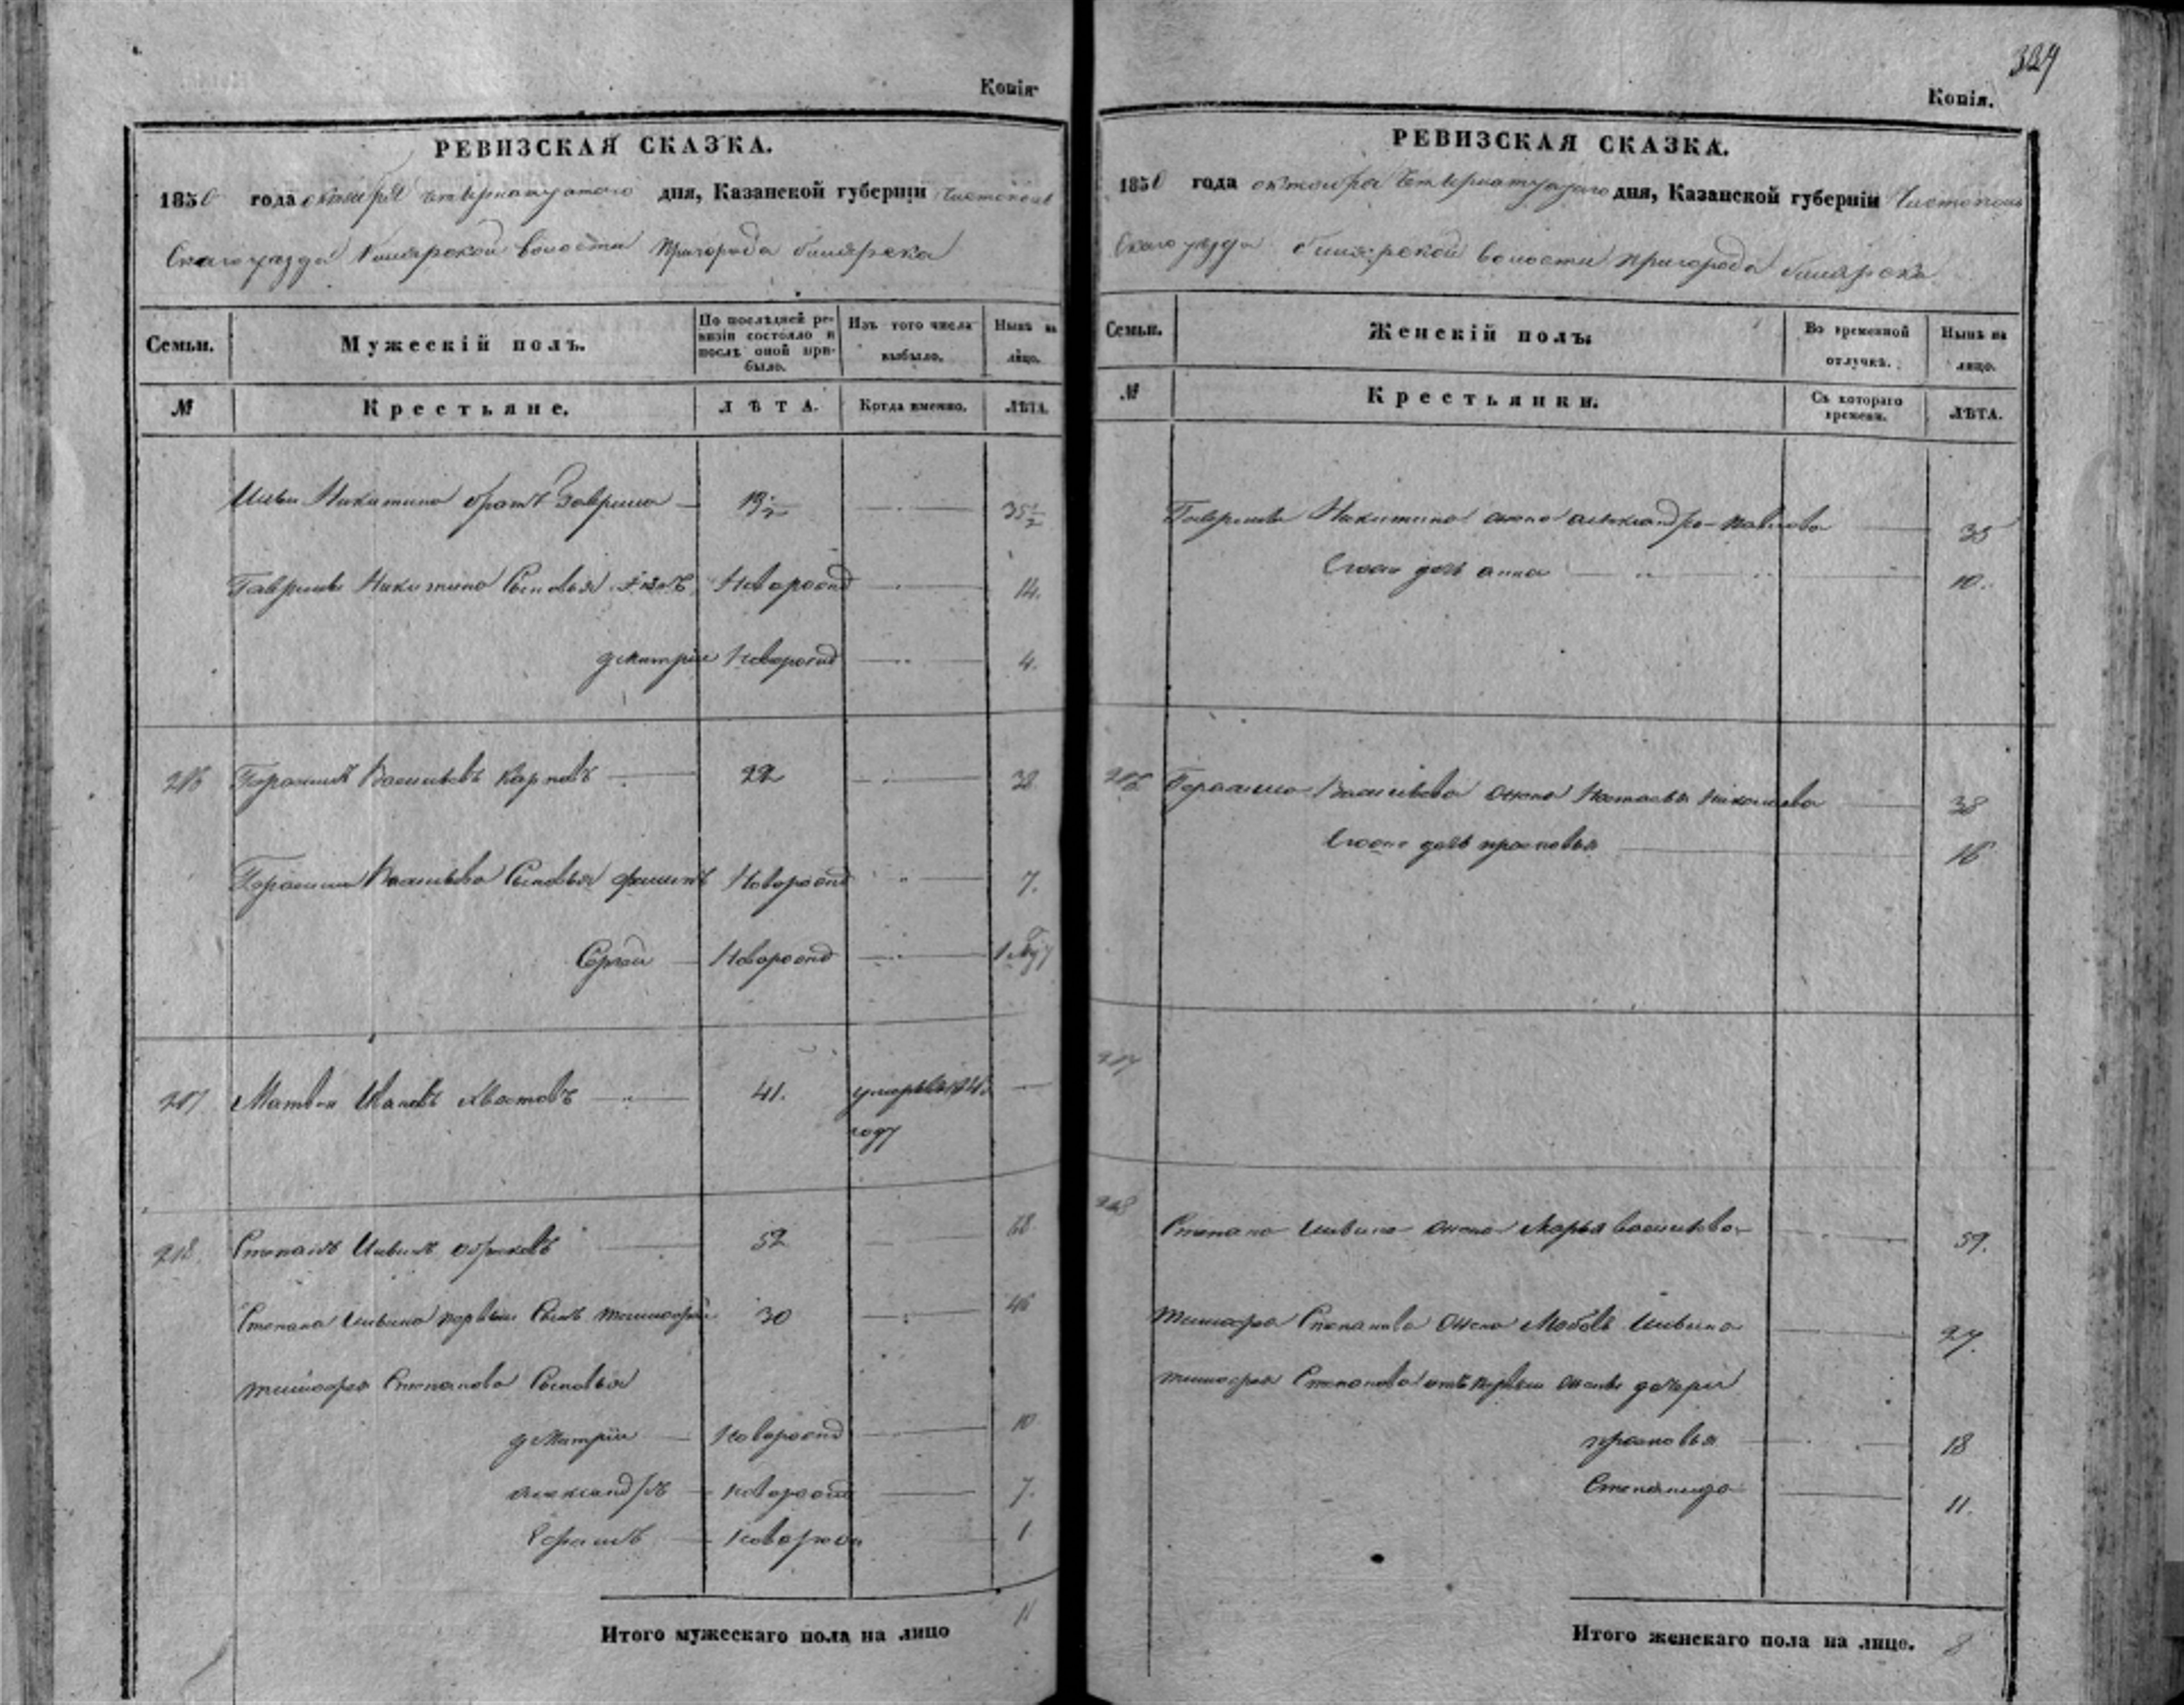 Копія
РЕВИЗСКАЯ СКАЗКА.
1850 года октября четырнатцатаго дня, Казанской губерніи Чистополь
Скаго уезда Билярской волости пригорода билярска
Семьи. Мужескій полъ. По послѣдней ревизіи состояло и послѣ оной прибыло. Изъ того числа выбыло. Нынѣ на лицо.
№ Крестьяне. ЛѢТА. Когда именно. ЛѢТА.
Никитина братъ Гаврила 19½ 35½
Гаврилы Никитина Сыновья Новорожд 14.
дмитрій Новорожд 4.
216 Герасимъ Васильевъ Карповъ 22 38
Герасима Васильева Сыновья филипъ Новорожд 7.
Сергей Новорожд 1
217 Матвей Ивановъ Хвостовъ 41. умеръ
году
218. Степанъ 52 68
Степана первый Сынъ тимофей 30 46
тимофея Степанова Сыновья
дмитрій Новорожд 10
александръ новорожд 7.
Ефимъ новорожд 1
Итого мужескаго пола на лицо 11
329
Копія.
РЕВИЗСКАЯ СКАЗКА.
1850 года октября четырнатцатаго дня, Казанской губерніи Чистополь
Скаго уезда билярской волости пригорода билярска
Семьи. Женскій полъ. Во временной отлучкѣ. Нынѣ на лицо.
№ Крестьянки. Съ котораго времени. ЛѢТА.
Гаврилы Никитина жена александра павлова 35
Егоже дочь анна 10.
216 Герасима Васильева жена Настасья Николаева 38
Егоже дочь прасковья 16
217
218 Степана жена Марья васильева 59.
тимофея Степанова жена Любовь 27.
тимофея Степанова отъ первой жены дочери
прасковья 18
Степанида 11.
Итого женскаго пола на лицо. 8